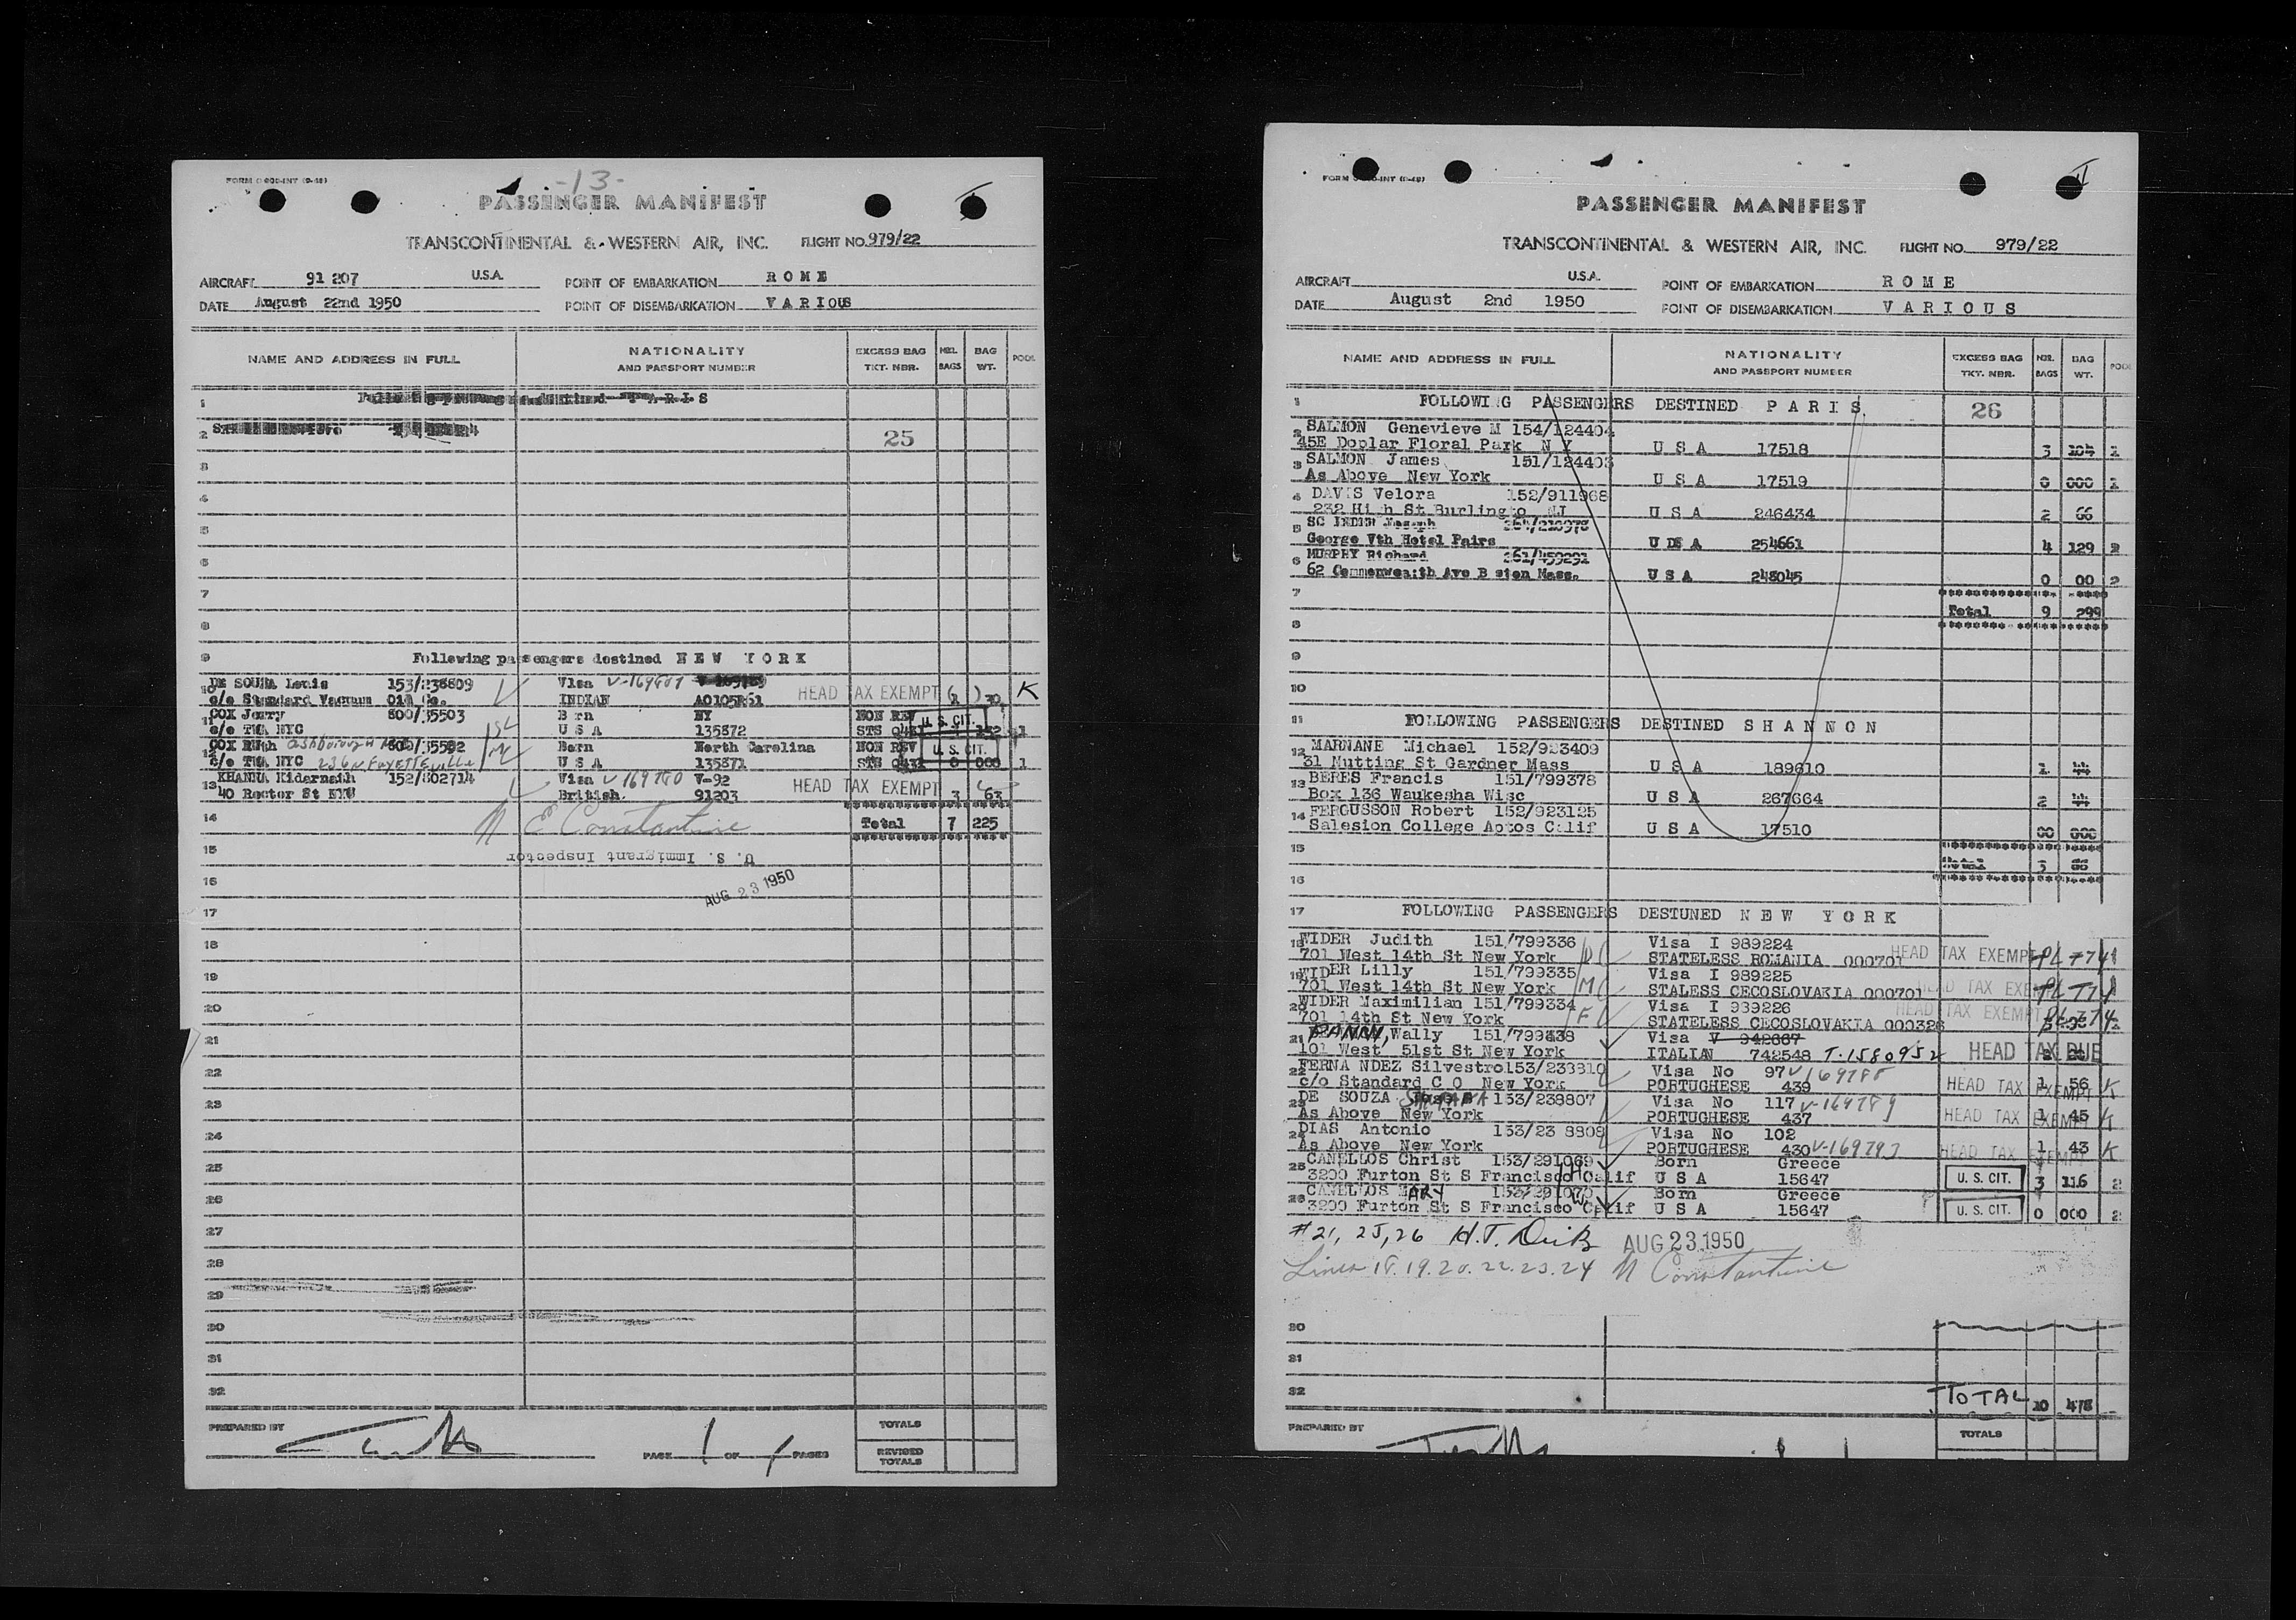 -13-
PASSENGER MANIFEST
TRANSCONTINENTAL & WESTERN AIR, INC. FLIGHT NO. 979/22
AIRCRAFT 91 207 U.S.A. POINT OF EMBARKATION R O M E
DATE August 22nd 1950 POINT OF DISEMBARKATION V A R I O U S
NAME AND ADDRESS IN FULL NATIONALITY AND PASSPORT NUMBER EXCESS BAG TKT. NBR. NBR. BAGS BAG WT. POOL
1
2 25
3
4
5
6
7
8
9 Following passengers destined N E W Y O R K
10 DE SOUZA Louis 153/238809 Visa V-169801
c/o Standard Vacuum Oil Co. INDIAN HEAD TAX EXEMPT K
11 COX Jerry 800/35503 Born NY NON REV U. S. CIT.
c/o TWA NYC U S A 135872 1
12 COX Ruth 800/35592 Born North Carolina NON REV U. S. CIT.
c/o TWA NYC 236 N Fayetteville U S A 135871 0 000 1
13 KHANNA Kidarnath 152/802714 Visa V-92
40 Rector St NYC British 91203 HEAD TAX EXEMPT 3 63
14 N E Constantine Total 7 225
15 U. S. Immigrant Inspector
16 AUG 23 1950
17
18
19
20
21
22
23
24
25
26
27
28
29
30
31
32
PREPARED BY PAGE 1 OF PAGES TOTALS
REVISED TOTALS
II
PASSENGER MANIFEST
TRANSCONTINENTAL & WESTERN AIR, INC. FLIGHT NO. 979/22
AIRCRAFT U.S.A. POINT OF EMBARKATION R O M E
DATE August 2nd 1950 POINT OF DISEMBARKATION V A R I O U S
NAME AND ADDRESS IN FULL NATIONALITY AND PASSPORT NUMBER EXCESS BAG TKT. NBR. NBR. BAGS BAG WT. POOL
1 FOLLOWI G PASSENGERS DESTINED P A R I S 26
2 SALMON Genevieve M 154/124404
45E Doplar Floral Park N Y U S A 17518 3 104 1
3 SALMON James 151/124403
As Above New York U S A 17519 0 000 1
4 DAVIS Velora 152/911968
232 High St Burlingto NJ U S A 246434 2 66
5 Joseph
George Vth Hotel Pairs 254661 4 129 2
6 MURPHY Richard 261/459291
62 Commonwealth Ave B ston Mass. U S A 248045 0 00 2
7
Total 9 299
8
9
10
11 FOLLOWING PASSENGERS DESTINED S H A N N O N
12 MARNANE Michael 152/923409
31 Nutting St Gardner Mass U S A 189610 1 44
13 BERES Francis 151/799378
Box 136 Waukesha Wisc U S A 267664 2 44
14 FERGUSSON Robert 152/923125
Salesion College Aptos Calif U S A 17510 00 000
15
Total 3
16
17 FOLLOWING PASSENGERS DESTUNED N E W Y O R K
18 WIDER Judith 151/799336 Visa I 989224
701 West 14th St New York STATELESS ROMANIA 000701 HEAD TAX EXEMPT
19 WIDER Lilly 151/799335 Visa I 989225
701 West 14th St New York STALESS CECOSLOVAKIA 000701 HEAD TAX EXEMPT
20 WIDER Maximilian 151/799334 Visa I 989226
701 14th St New York STATELESS CECOSLOVAKIA 000326 HEAD TAX EXEMPT
21 Wally Visa V 942667
101 West 51st St New York ITALIAN 742548 T-1580952 HEAD TAX DUE
22 FERNA NDEZ Silvestro153/238810 Visa No 97
c/o Standard C O New York PORTUGHESE 439 HEAD TAX EXEMPT 1 56 K
23 DE SOUZA 153/238807 Visa No 117 V-169789
As Above New York PORTUGHESE 437 HEAD TAX EXEMPT 1 45 K
24 DIAS Antonio 153/23 8808 Visa No 102
As Above New York PORTUGHESE 430 V-169793 HEAD TAX EXEMPT 1 43 K
25 CANELLOS Christ 153/291069 Born Greece
3200 Furton St S Francisco Calif U S A 15647 U. S. CIT. 3 116 2
26 CANELLOS MARY 153/291070 Born Greece
3200 Furton St S Francisco Calif U S A 15647 U. S. CIT. 0 000 2
#21, 25, 26 H.T. AUG 23 1950
Lines 18.19.20.22.23.24 N Constantine
30
31
32 TOTAL 10 478
PREPARED BY TOTALS